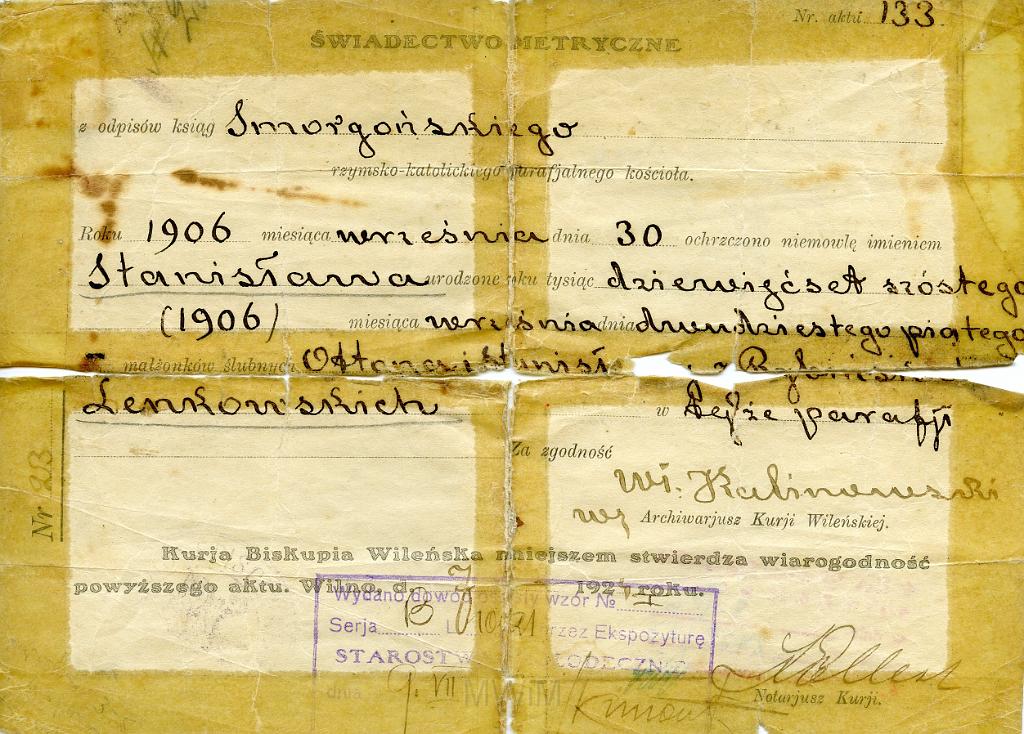 Nr. aktu 133.
ŚWIADECTWO METRYCZNE
z odpisów ksiąg Smorgońskiego
rzymsko-katolickiego parafjalnego kościoła.
Roku 1906 miesiąca września dnia 30 ochrzczono niemowlę imieniem
Stanisława urodzone roku tysiąc dziewięćset szóstego
(1906) miesiąca września dnia dwudziestego piątego
małżonków ślubnych Ottona i Stanisł z
Lenkowskich w parafji
Za zgodność
Wł. Kalinowski
wz Archiwarjusz Kurji Wileńskiej.
Nr 23
Kurja Biskupia Wileńska niniejszem stwierdza wiarogodność
powyższego aktu. Wilno, d. 7 192 roku.
Wydano dowód osobisty wzór № I
Serja B L przez Ekspozyturę
STAROSTW MOŁODECZNIE
dnia VII
MWiM
Notarjusz Kurji.